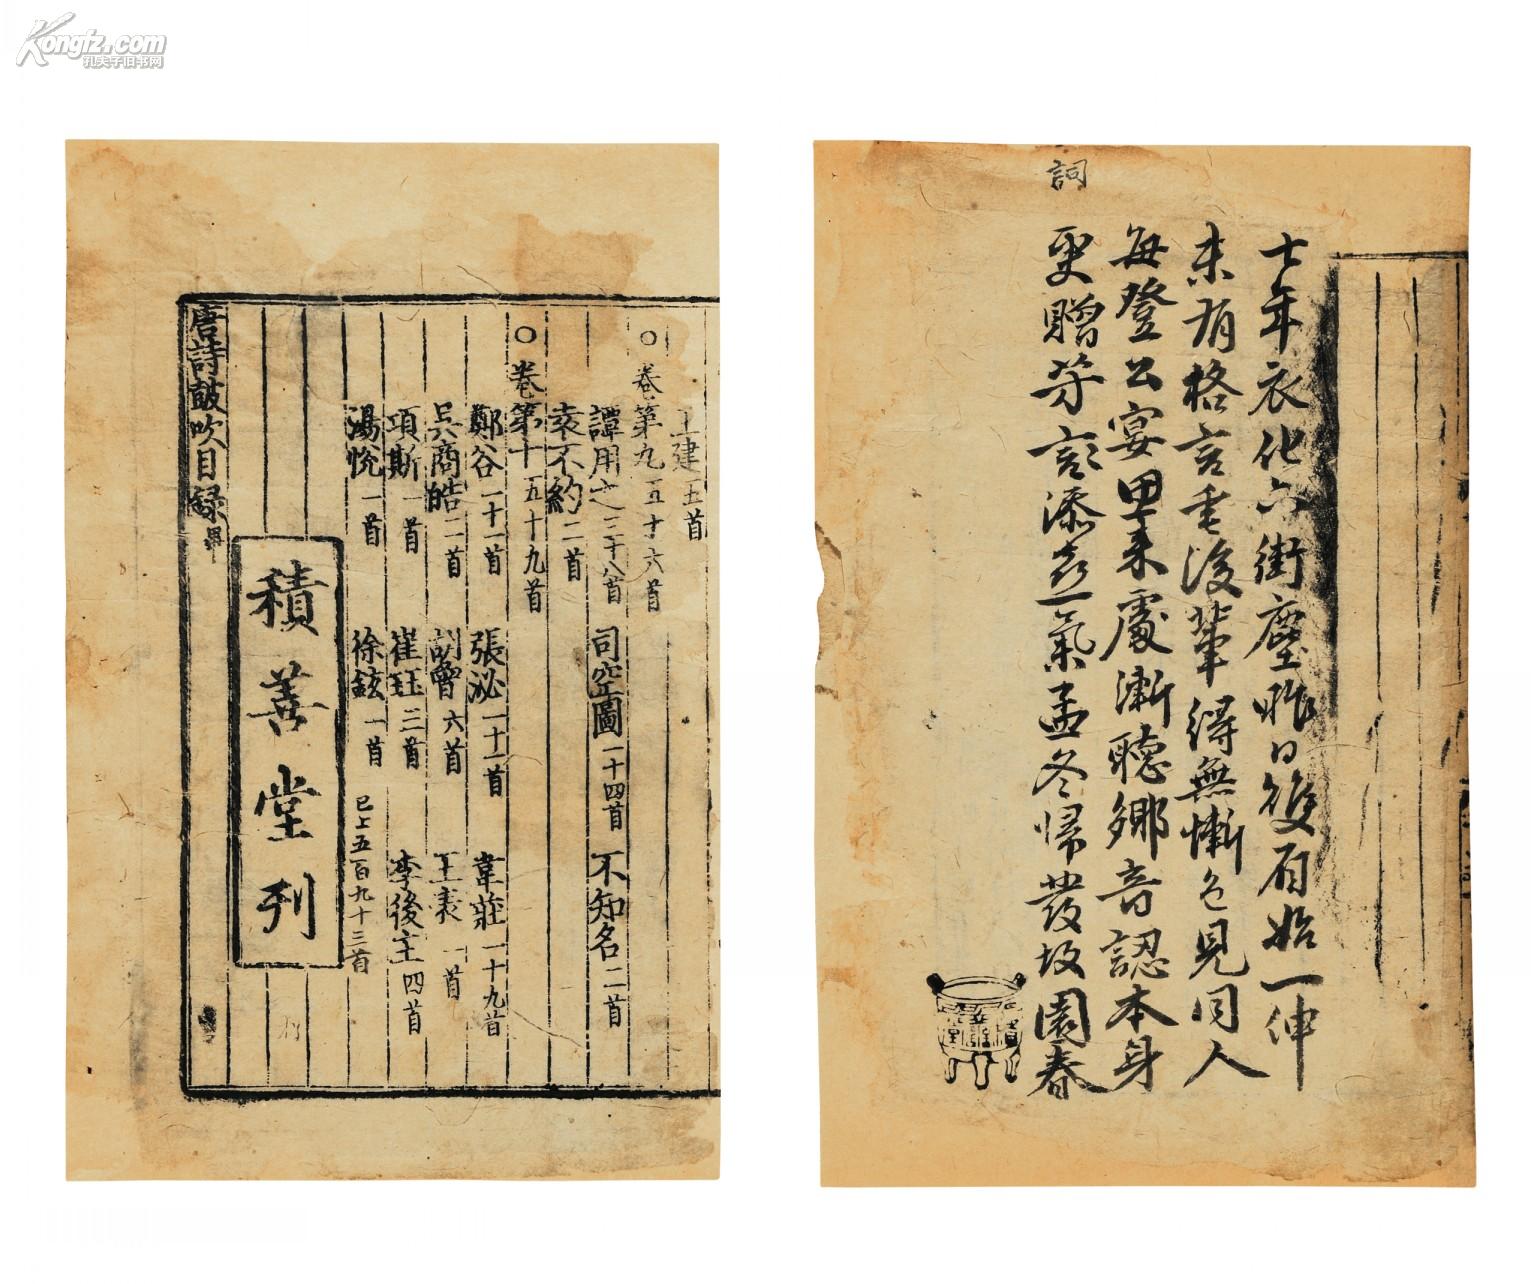 Kongfz.com
孔夫子旧书网
詞
七年衣化六街塵昨日雙眉始一伸
未有格言垂後輩得無慚色見同人
每登公宴思来處漸聽鄉音認本身
更贈芳言添喜氣孟冬歸發故園春
王建五首
○卷第九五十六首
譚用之三十八首 司空圖一十四首 不知名二首
袁不約二首
○卷第十五十九首
鄭谷一十一首 張泌一十一首 韋莊一十九首
吳商皓二首 胡曾六首 王表一首
項斯一首 崔珏二首 李後主四首
湯悅一首 徐鉉一首 已上五百九十三首
積善堂刊
唐詩鼓吹目録畢